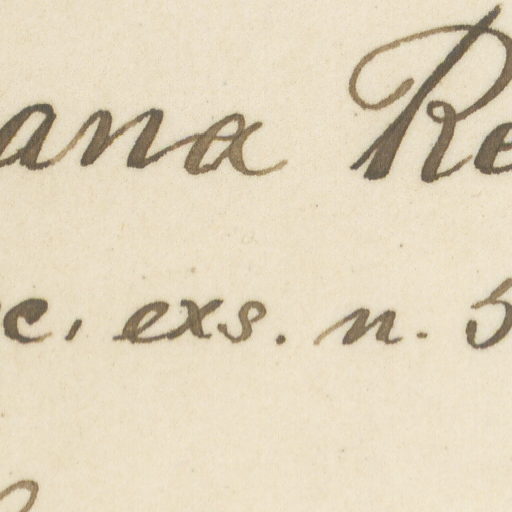 ana Re
c, exs. n. 5